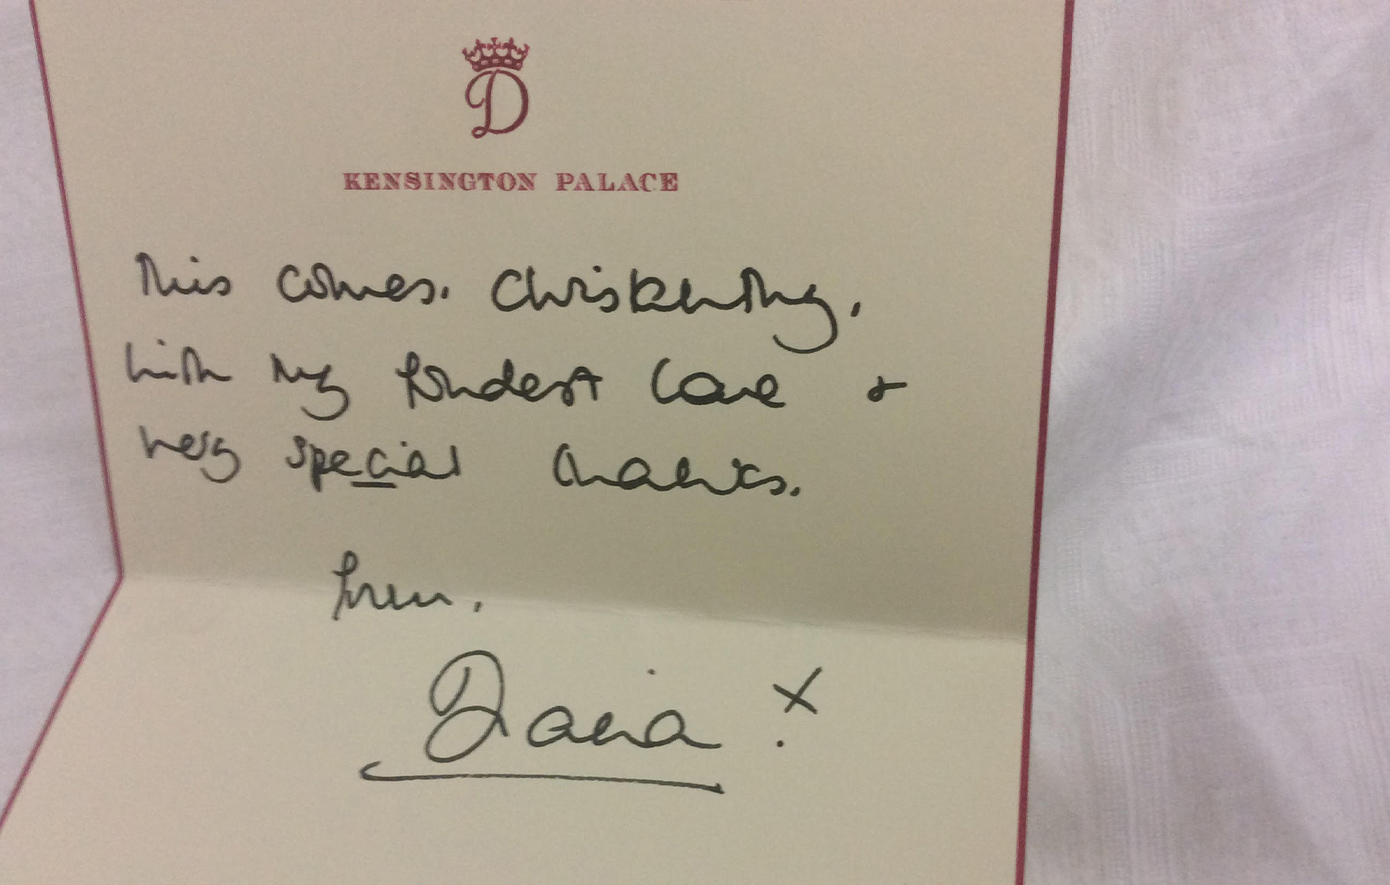 D
KENSINGTON PALACE
This comes,
with my fondest love &
very special thanks.
from,
Diana x